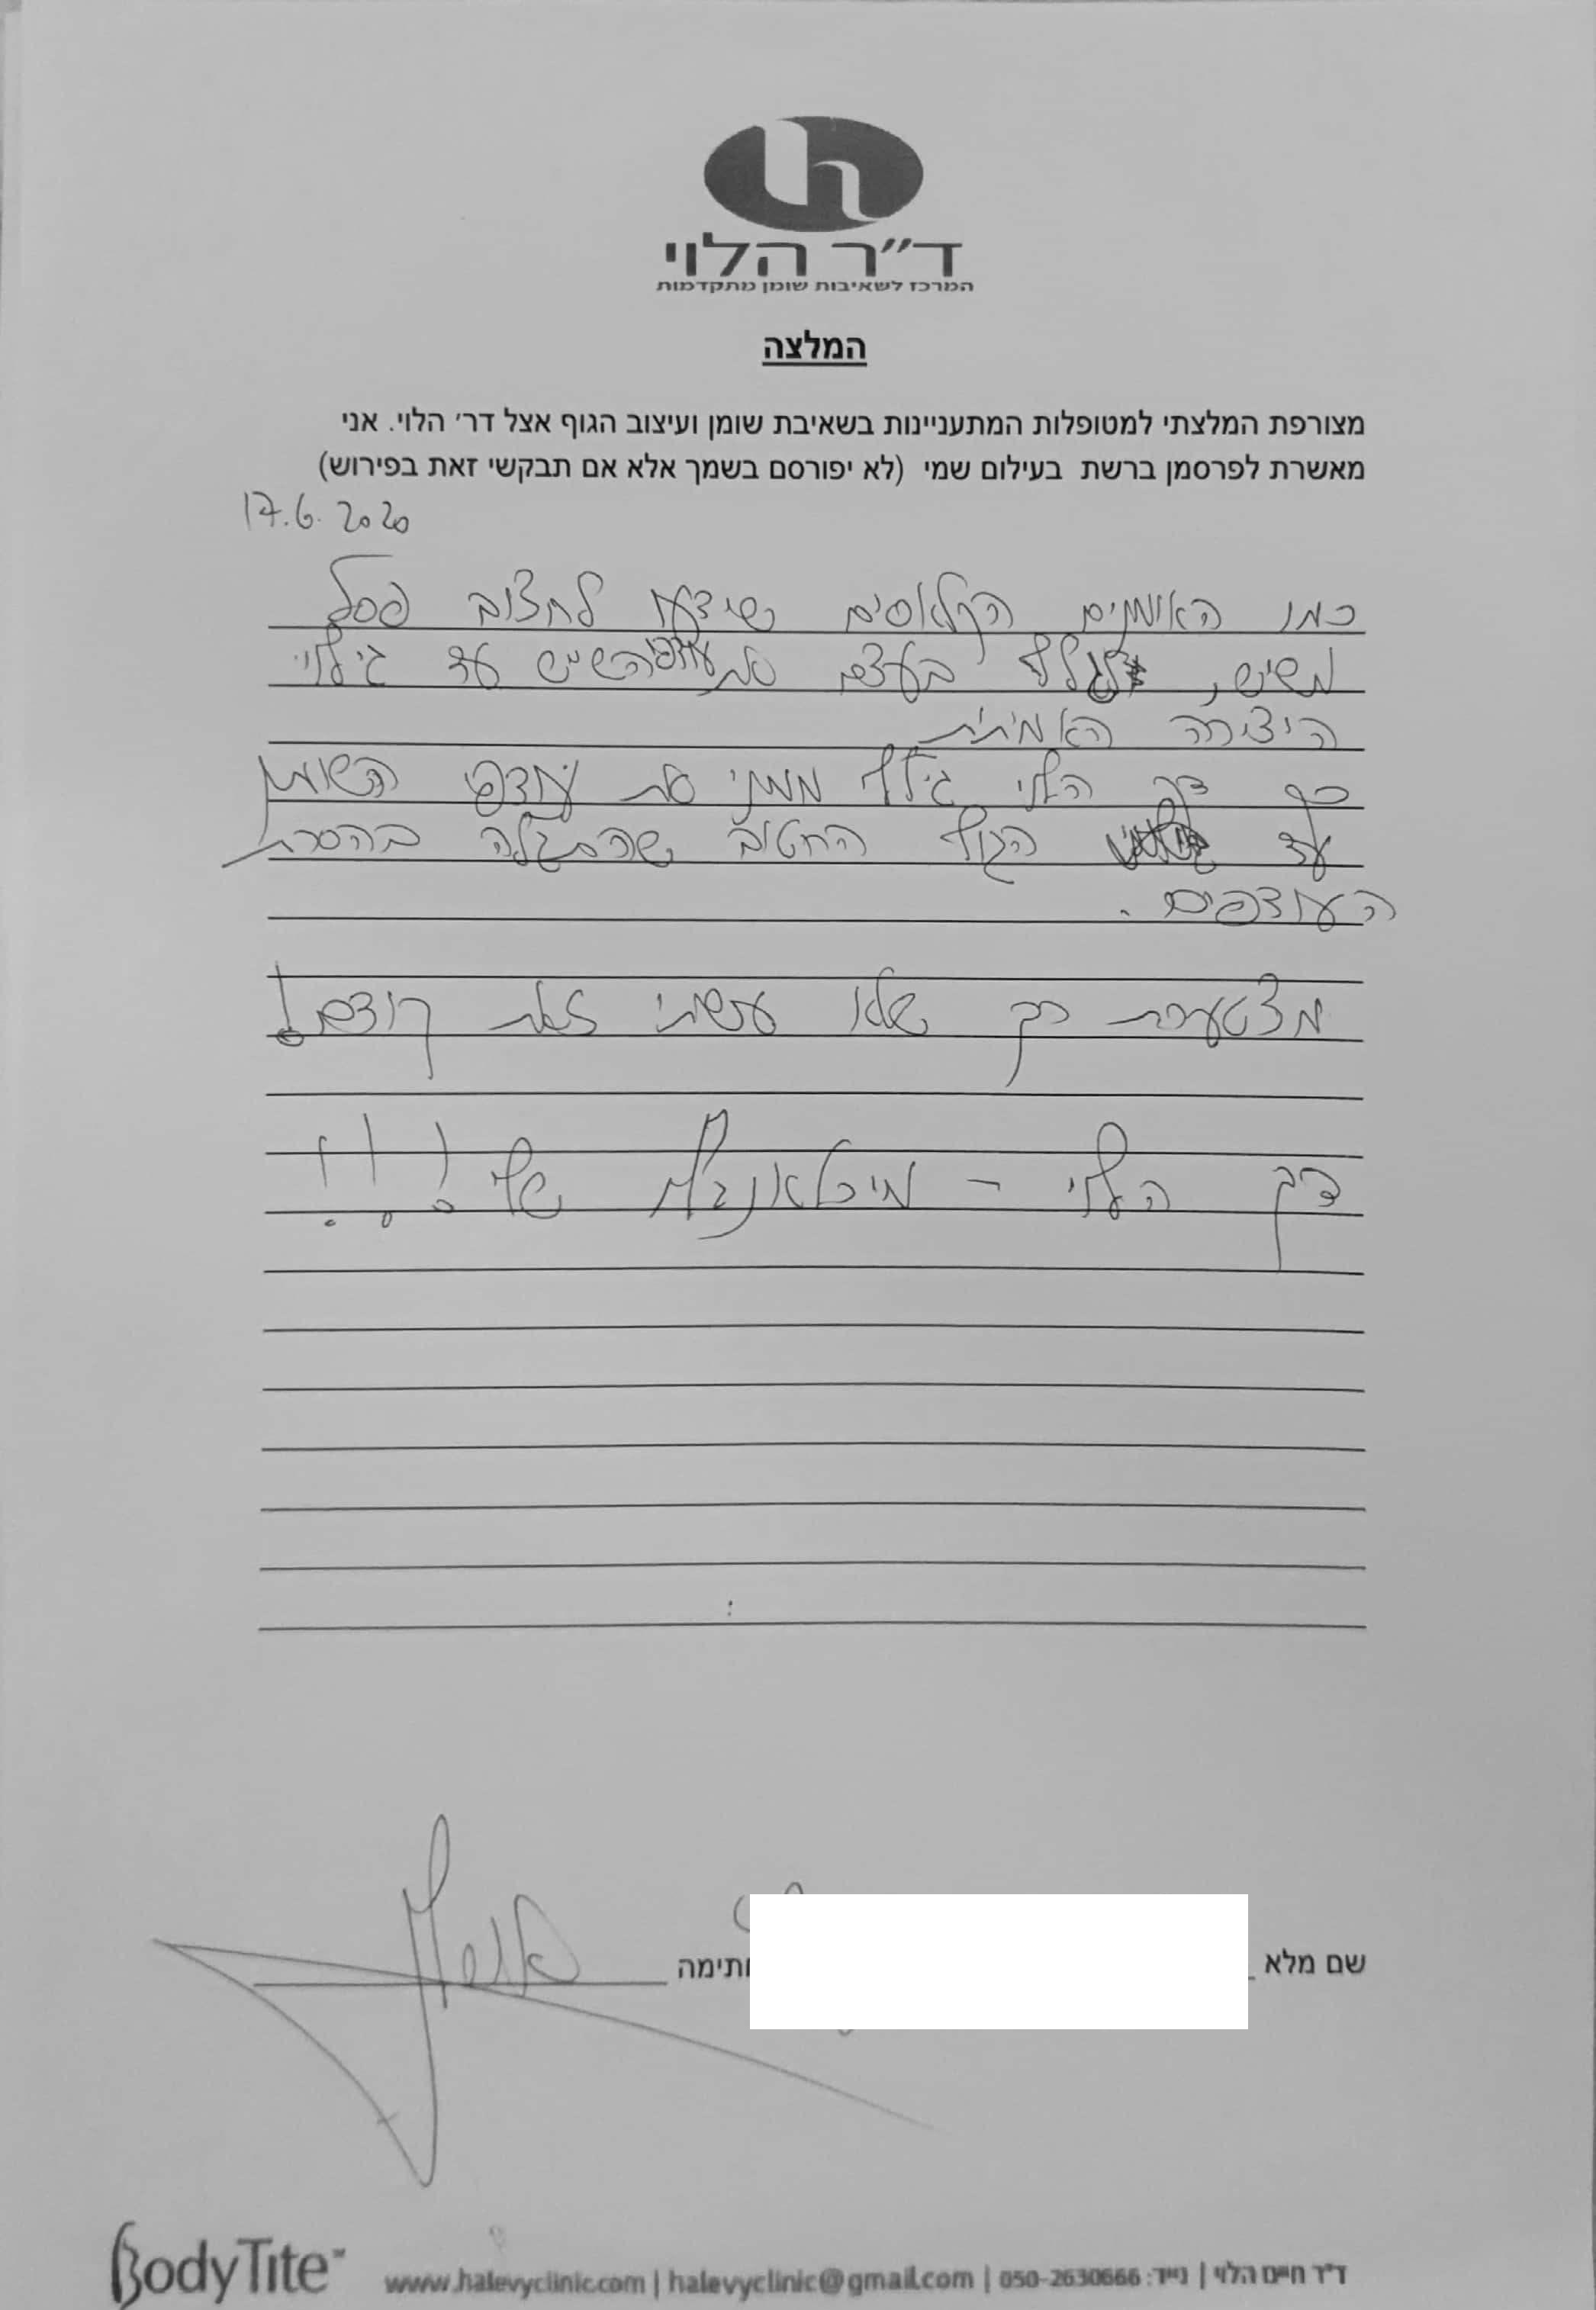 ד״ר הלוי
המרכז לשאיבות שומן מתקדמות
המלצה
מצורפת המלצתי למטופלות המתעניינות בשאיבת שומן ועיצוב הגוף אצל דר׳ הלוי. אני
מאשרת לפרסמן ברשת בעילום שמי (לא יפורסם בשמך אלא אם תבקשי זאת בפירוש)
17.6.2020
כמו האומנים הקלאסים שידעו לחצוב פסל
משיש, לגלף בעצם את עודפי השיש עד גילוי
היצירה האמיתית
כך דר הלוי גילף ממני את עודפי השומן
עד הגוף החטוב שהתגלה בהסרת
העודפים.
מצטערת רק שלא עשיתי זאת קודם!
דר הלוי - מיכלאנג'לו שלי!!!
שם מלא
חתימה
BodyTite™
www.halevyclinic.com | halevyclinic@gmail.com | ד״ר חיים הלוי | נייד: 050-2630666